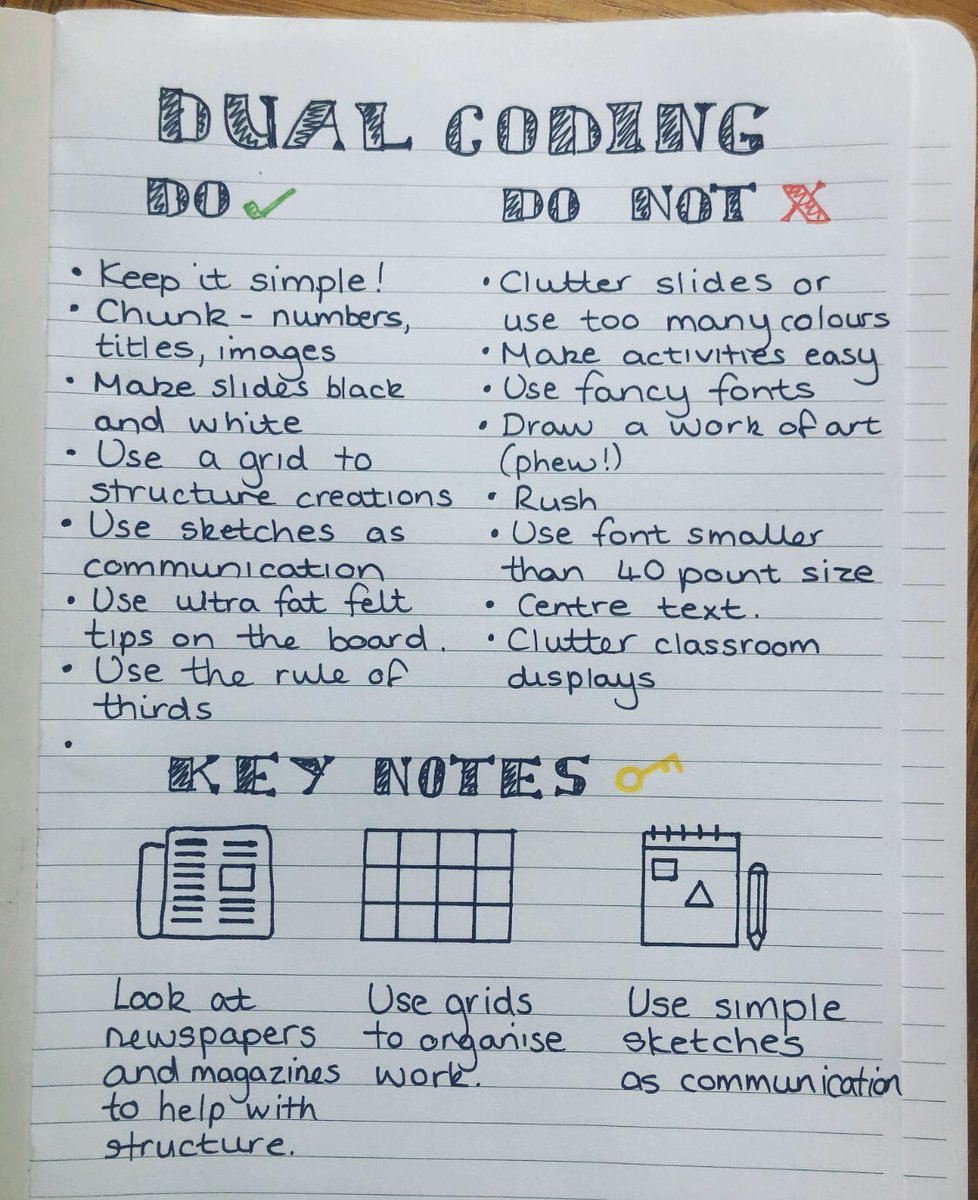 DUAL CODING
DO
• Keep it simple!
• Chunk - numbers,
titles, images
• Make slides black
and white
• Use a grid to
structure creations
• Use sketches as
communication
• Use ultra fat felt
tips on the board.
• Use the rule of
thirds
•
DO NOT
• Clutter slides or
use too many colours
• Make activities easy
• Use fancy fonts
• Draw a work of art
(phew!)
• Rush
• Use font smaller
than 40 point size
• Centre text.
• Clutter classroom
displays
KEY NOTES
Look at
newspapers
and magazines
to help with
structure.
Use grids
to organise
work.
Use simple
sketches
as communication